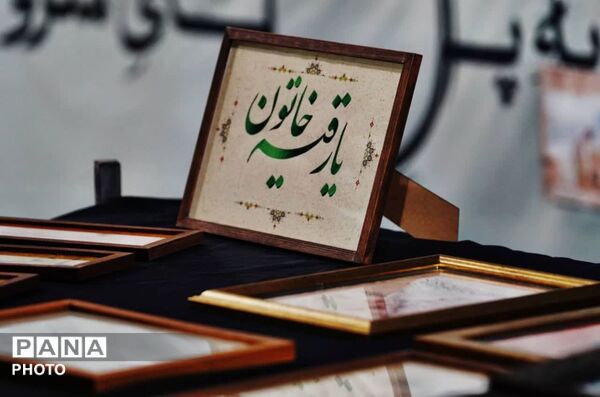 یا رقیه خاتون
PANA
PHOTO